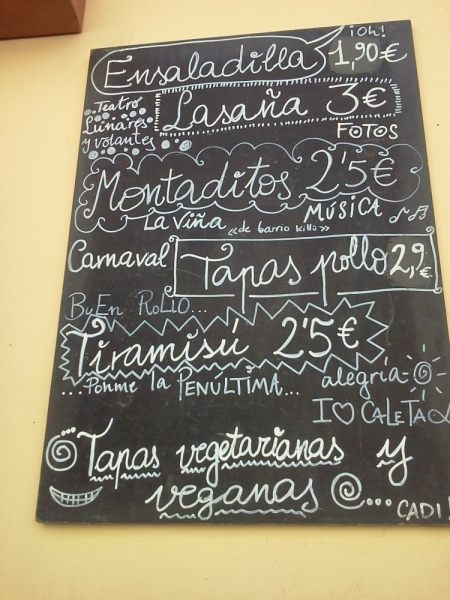 ¡Oh!
Ensaladilla 1,90€
Teatro
Lasaña 3€
Lunares
y volantes
FOTOS
Montaditos 2'5€
MÚSICA
La Viña «de barrio killo»
Carnaval
Tapas pollo 2,9€
BuEn RoLLO...
Tiramisú 2'5€
...Ponme la PENÚLTIMA...
alegría
I ♡ CALETA
Tapas vegetarianas y
veganas
...CADI